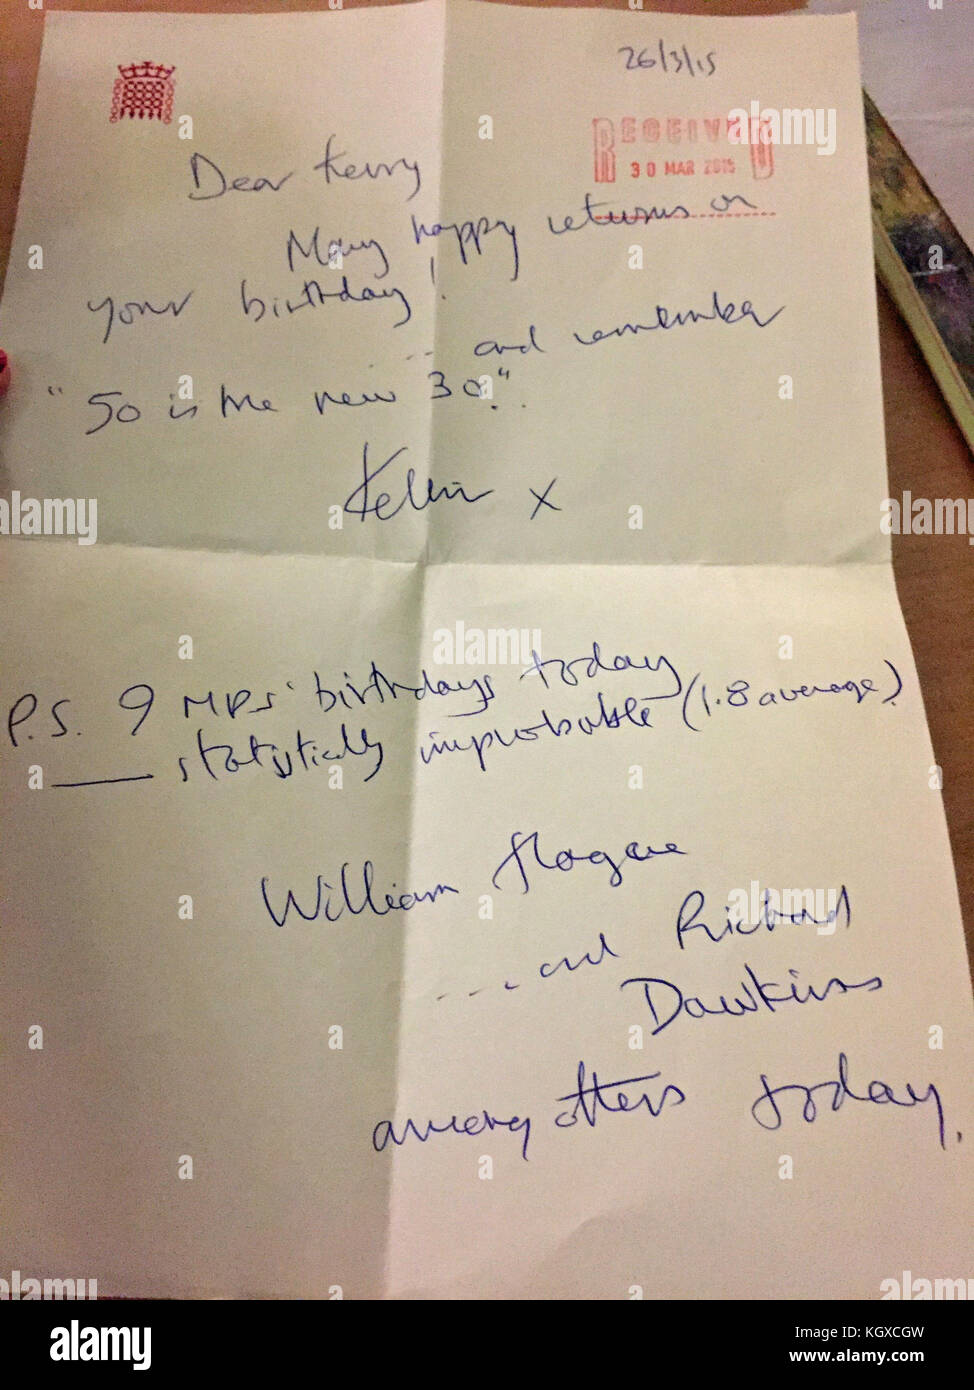 26/3/15
RECEIVED
30 MAR 2015
Dear Kerry
Many happy returns on
your birthday!
... and remember
"50 is the new 30."
Kelvin x
P.S. 9 MPs' birthdays today
statistically improbable (1.8 average).
William Hague
.... and Richard
Dawkins
among others today.
alamy stock photo
KGXCGW
www.alamy.com